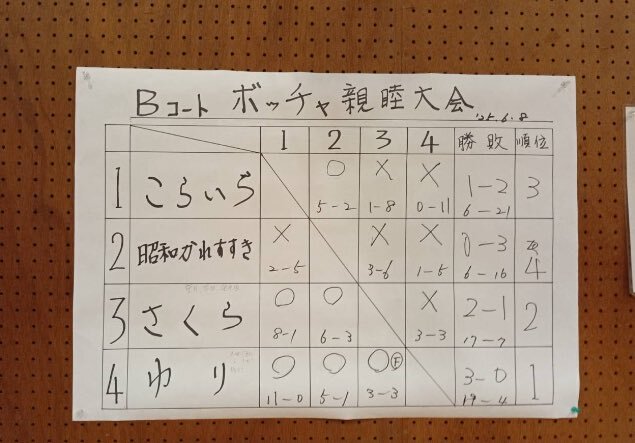 Bコート ボッチャ親睦大会 '25.6.8
1 2 3 4 勝敗 順位
1 こらいぢ ○ × × 1-2 3
5-2 1-8 0-11 6-21
2 昭和かれすすき × × × 0-3 4
2-5 3-6 1-5 6-16
3 さくら ○ ○ × 2-1 2
8-1 6-3 3-3 17-7
4 ゆり ○ ○ ○Ⓕ 3-0 1
11-0 5-1 3-3 19-4